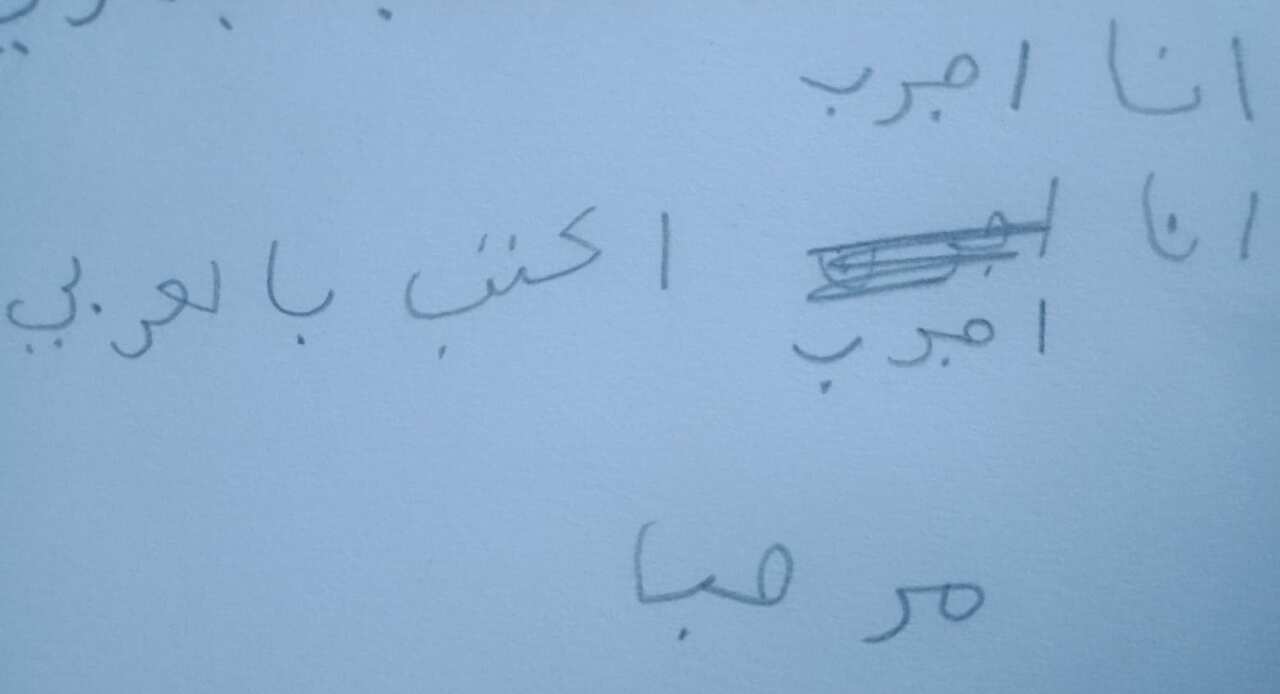 انا اجرب
انا اجرب اكتب بالعربي
مرحبا